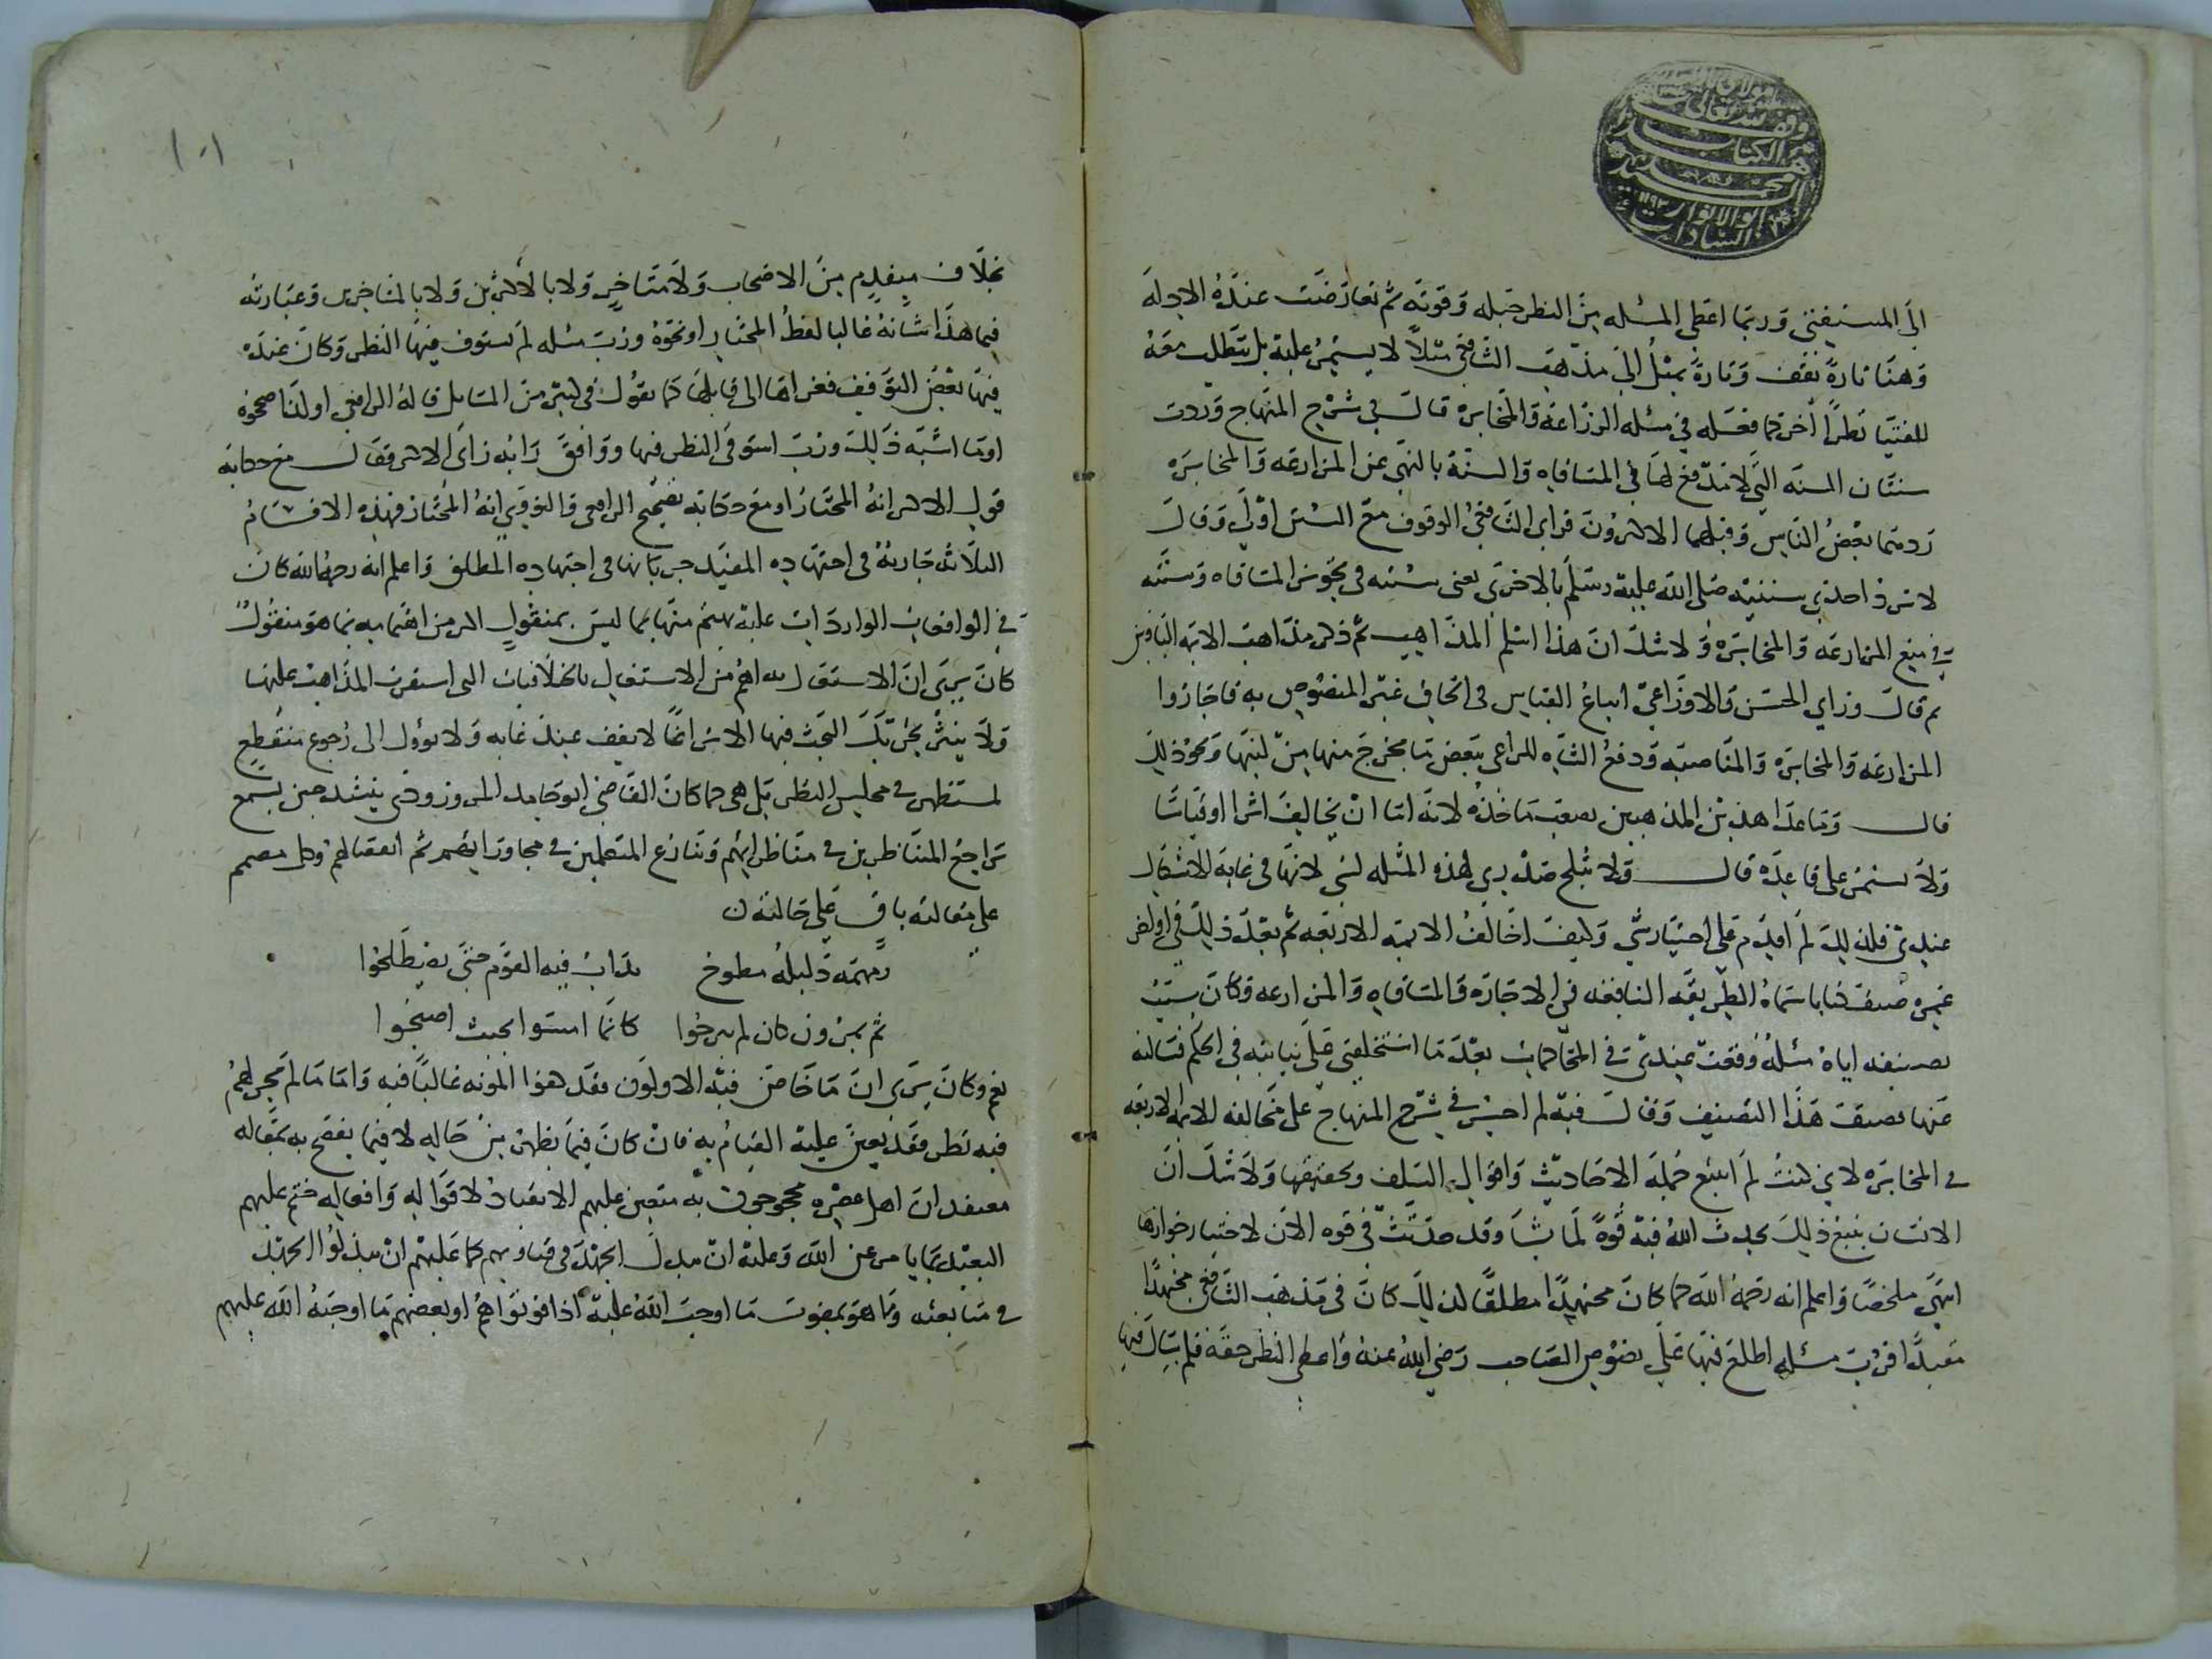 وقف لله تعالى
الكتاب
محمد
ابو الانوار ١١٩٣
السادات
الى المستفتى وربما اعطى المسئله من النظر حقه وقوته ثم تعارضت عنده الادله
وهنا تارة تقف وتارة يميل الى مذهب الشافعى مثلا لا يستمر عليه بل يتطلب معه
للفتيا نظرا اخر كما فعله فى مسئله المزراعة والمخابره قال فى شرح المنهاج وردت
سنتان السنه التى لا تدفع لها فى المساقاه والسنة بالنهى عن المزارعه والمخابره
رد منهما بعض الناس وقبلهما الاكثرون فراى الشافعى الوقوف مع السنن اولى وقال
لا نرد احدى سنتيه صلى الله عليه وسلم بالاخرى يعنى سنته فى تجويز المساقاه وسنته
فى منع المزارعه والمخابره ولا شك ان هذا اسلم المذاهب ثم ذكر مذاهب الايمه الباقين
ثم قال وراى الحسن والاوزاعى اتباع القياس فى الحاق غير المنصوص به فاجازوا
المزارعه والمخابره والمناصبه ودفع الشاه للراعى ببعض ما يخرج منها من لبنها ونحو ذلك
قال وما عدا هذين المذهبين يصعب ماخذه لانه اما ان يخالف اثرا او قياسا
ولا يستمر على قاعده قال ولا يثلج صدرى لهذه المسئله لشى لانها فى غاية الاشكال
عندى فلذلك لم اقدم على اختيار شى وكيف اخالف الايمه الاربعه ثم بعد ذلك فى اواخر
عمره صنف كتابا سماه الطريقه النافعه فى الاجاره والمساقاه والمزارعه وكان سبب
تصنيفه اياه مسئله وقعت عندى فى المحاكمات بعد ما استخلفنى على نيابته فى الحكم فسالته
عنها فصنف هذا التصنيف وقال فيه لم اجسر فى شرح المنهاج على مخالفه الايمه الاربعه
فى المخابره لانى كنت لم اتتبع جملة الاحاديث واقوال السلف وتحقيقها ولا شك ان
الانسان بتتبع ذلك يحدث الله فيه قوة لما يشا وقد حدثت فى قوه الان لاختيار جوازها
انتهى ملخصا واعلم انه رحمه الله كما كان مجتهدا مطلقا كذلك كان فى مذهب الشافعى مجتهدا
مقيدا فرب مسئله اطلع فيها على نصوص الصاحب رضى الله عنه واعطى النظر حقه فلم يبال فيها
١٠١
بخلاف متقدم من الاصحاب ولا متاخر ولا بالاكثرين ولا بالمتاخرين وعبارته
فيما هذا شانه غالبا لفظ المختار او نحوه ورب مسئله لم يستوف فيها النظر وكان عنده
فيها بعض التوقيف فعزاها الى قايلها كما يقول فى كثير من المسايل قاله الرافعى او لنا صححوه
او ما اشبه ذلك ورب استوفى النظر فيها ووافق رايه راى الاكثر فقال مع حكايه
قول الاكثر انه المختار او مع حكايه تصحيح الرافعى والنووى انه المختار فهذه الاقسام
الثلاثه جارية فى اجتهاده المقيد جريانها فى اجتهاده المطلق واعلم انه رحمه الله كان
فى الواقعات الواردات عليه يهتم منها بما ليس بمنقول اكثر من اهتمامه بما هو منقول
كان يرى ان الاشتغال به اهم من الاشتغال بالخلافيات التى استقرت المذاهب عليها
ولا يثمر تحريك البحث فيها الا شرا دائما لا يقف عند غايه ولا يوول الى رجوع منقطع
لمستظهر فى مجلس النظر بل هى كما كان القاضى ابو حامد المروروذى ينشد حين يسمع
تراجع المتناظرين فى مناظراتهم وتنازع المتعلمين فى محاوراتهم ثم انفصالهم وكل مصمم
على مقالته باق على حالته
ومهمه دليله مطوح يداب فيه القوم حتى يطلحوا
ثم يمرون كان لم يبرحوا كانما امسوا بحيث اصبحوا
نعم وكان يرى ان ما خاض فيه الاولون فقد كفوا المونه غالبا فيه واما ما لم يجر لهم
فيه نظر فقد تعين عليه القيام به فان كان فيما يظهر من حاله لا فيما يفصح به بمقاله
معتقد ان اهل عصره محجوجون به متعين عليهم الانقياد لاقواله وافعاله حتم عليهم
التعبد بما يامر عن الله وعليه ان يبذل الجهد فى فتاويهم كما عليهم ان يبذلوا الجهد
فى متابعته وما هو بمفوت ما اوجب الله عليه اذا فوتوا هم او بعضهم ما اوجبه الله عليهم